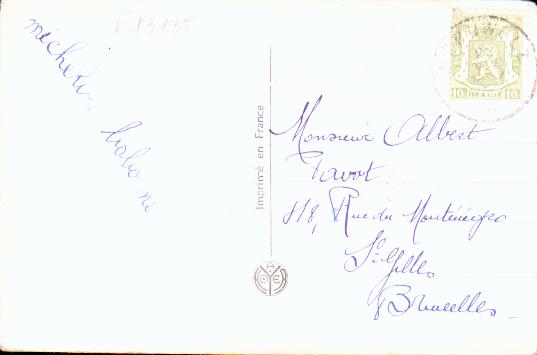 F13135
micheline
Imprimé en France
10 BELGIE 10
Monsieur Albert
118, Rue du Monténégro
St-Gilles
Bruxelles